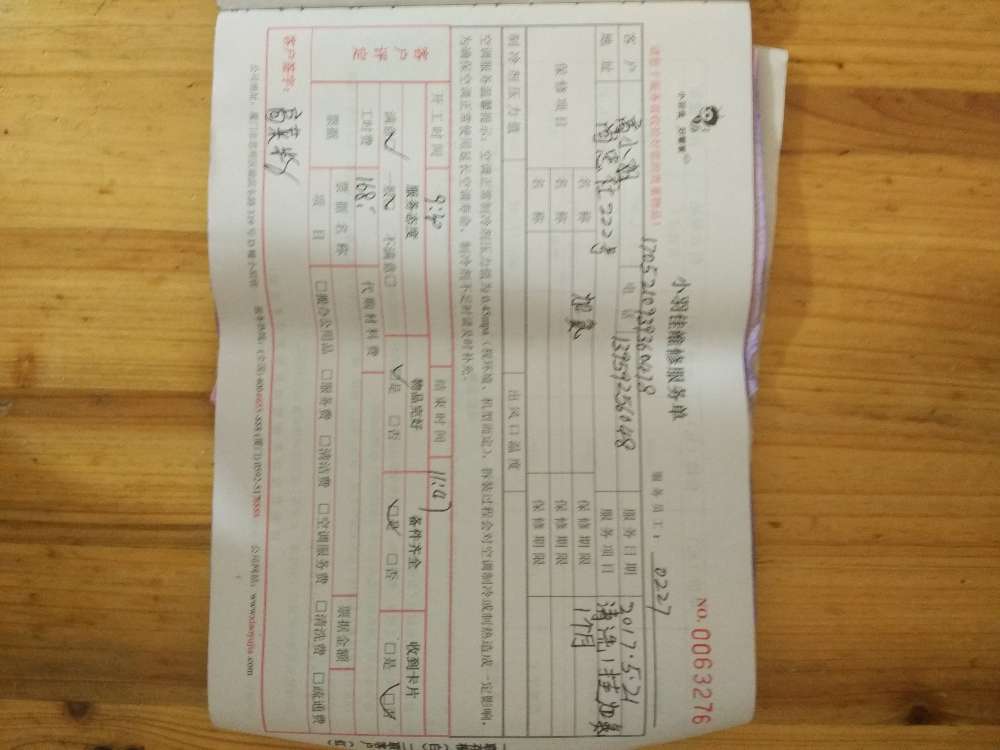 小羽佳 好管家
小羽佳维修服务单
NO. 0063276
1705210939360418
服务员工：0227
客户
电话 13959256048
服务日期 2017.5.21
地址 222号
服务项目 清洗1挂加氨
保修项目
名称 加氨 保修期限 1个月
名称 保修期限
名称 保修期限
制冷剂压力值 出风口温度
空调服务温馨提示：空调正常制冷剂压力值为0.45mpa（视环境、机型而定），拆装过程会对空调制冷或制热造成一定影响，
为确保空调正常使用延长空调寿命，制冷剂不足时请及时补充。
开工时间 结束时间 11:07
客户评定
服务态度 物品完好 备件齐全 收到卡片
满意 一般 不满意□ 是 □否 □是 □否 □是 □否
工时费 168 代购材料费
票据 票据名称 票据金额
项目 □报办公用品 □服务费 □清洁费 □空调服务费 □清洗费 □疏通费
客户签字：
服务热线：(全国) 4006051-888 (厦门) 0592-8178888 公司网站：www.xiaoyujia.com